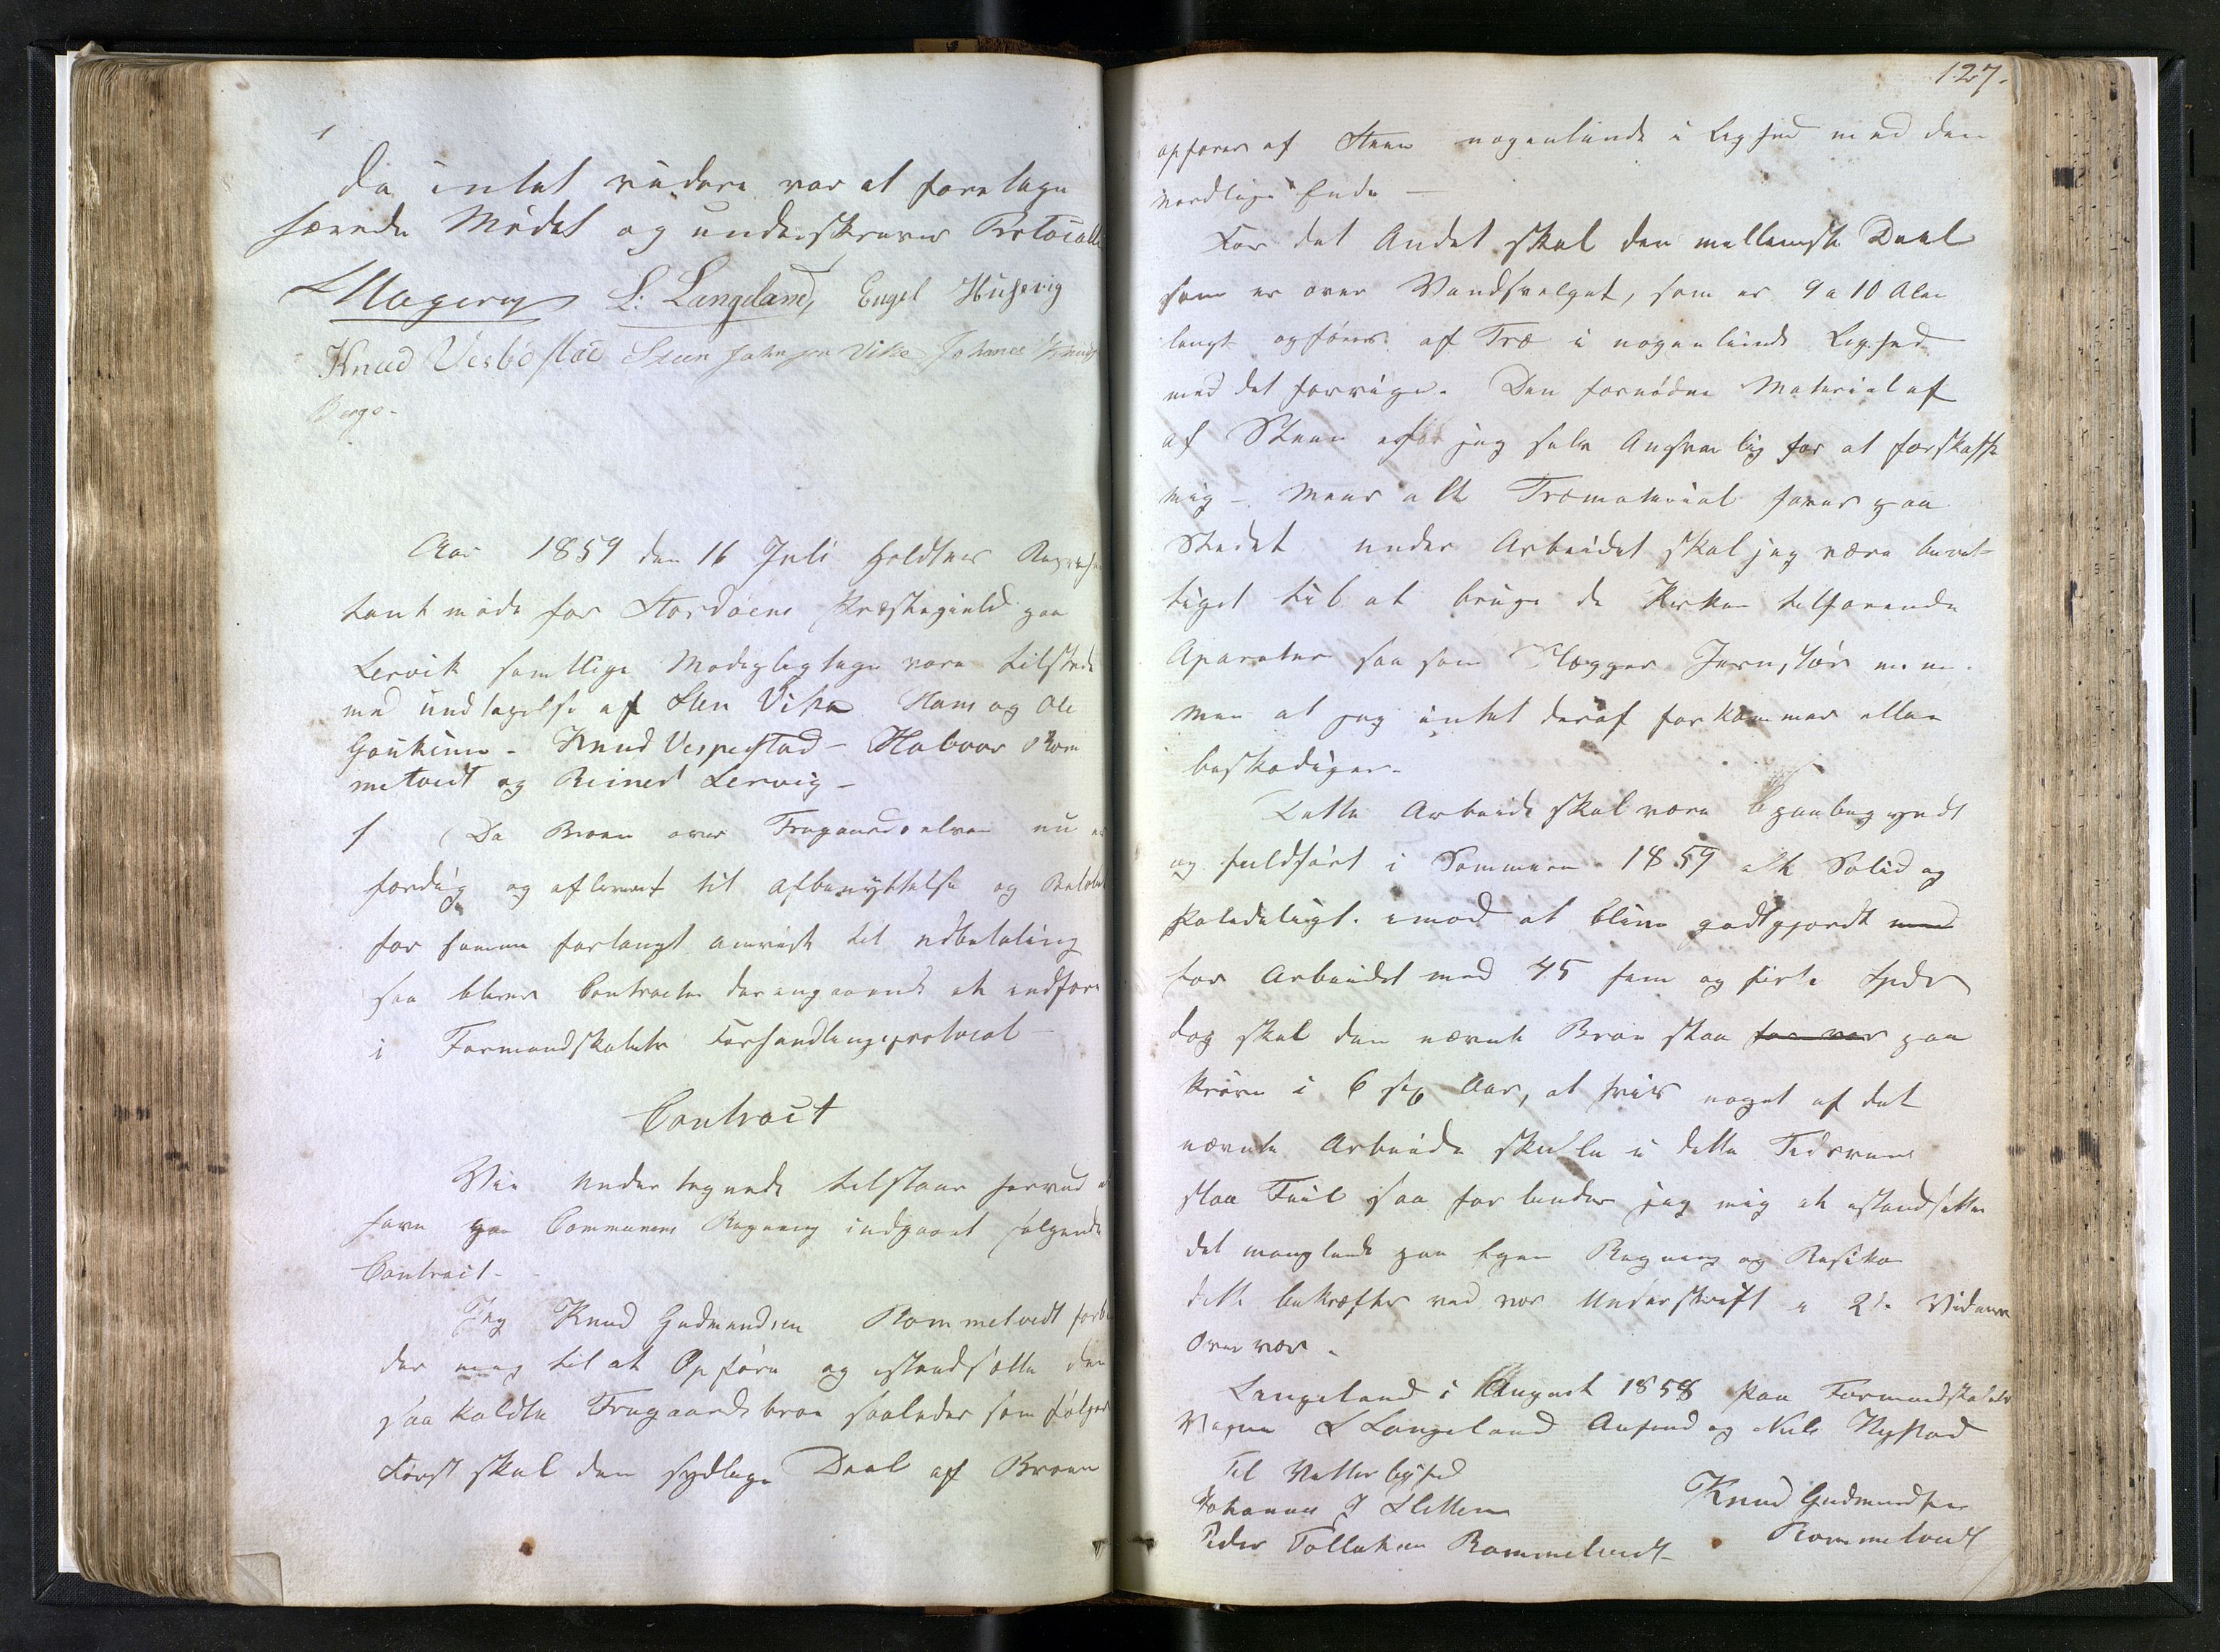 Da intet videre var at foretage
hævedes Mødet og underskreves Protocolle
Magerøy L. Langeland, Engel Hüsevig
Knud Vesbøstad Steen Johnsen Vika Johanes Knuds
Berge-
Aar 1859 den 16 Juli holdtes Repræsen
tantmøde for Stordøens Præstegield paa
Lervik samtlige Medeglegtage vare tilstede
med undtagelse af Sten Vika Hans og Ole
Gøukium - Knud Vespestad - Halvor Rom
metvedt og Reinert Lervig -
1 Da Broen over Frugaardselven nu er
færdig og afleveret til Afbenyttelse og Beløbet
for samme forlangt anvist til udbetaling
saa bliver Contracten derangaaende at indføre
i Formandskabets Forhandlingsprotocol -
Contract
Vie Undertegnede tilstaar herved at
have paa Communens Regning indgaaet følgende
Contract. -
Jeg Knud Gudmundsen Rommetvedt forbin
der meg til at Opføre og istandsætte den
saa kaldte Frugaards broe saaledes som følger
Først skal den sydlige Deel af Broen
127.
opføres af Steen nogenlunde i Lighed med den
Nordlige Ende -
For det Andet skal den mellemste Deel
som er over Vandsvelget, som er 9 a 10 Alen
langt opføres af Træ i nogenlunde Lighed
med det forrige. Den fornødne Material af
af Steen er jeg selv Ansvarlig for at forskaffe
mig - Mens alt Træmaterial føres paa
Stedet under Arbeidet skal jeg være beret-
tiget til at bruge de Kirken tilhørende
Aparater saa som Slægger Jernstør m.m.
men at jeg intet deraf forkommer eller
beskadiger.
Dette Arbeide skal være paabegyndt
og fuldført i Sommeren 1859 alt Solid og
Paladeligt. imod at blive godtgjordt med
for Arbeidet med 45 fem og firti Spdr
dog skal den nævnte Broe staa for vor paa
Prøve i 6 sex Aar, at hvis noget af det
nævnte Arbeide skulle i dette Tidsrum
slaa Feil saa forbinder jeg mig at istandsette
det manglende paa Egen Regning og Resiko
dette bekræftes ved vor Underskrift i 2de Vidners
Overvær.
Langeland i August 1858 Paa Formandskabets
Vegne L Langeland Ansend og Nils Nysted
Til Vitterlighed
Johannes J Sletten
Peder Tollaksen Rommetvedt
Knud Gudmundsen
Rommetvedt